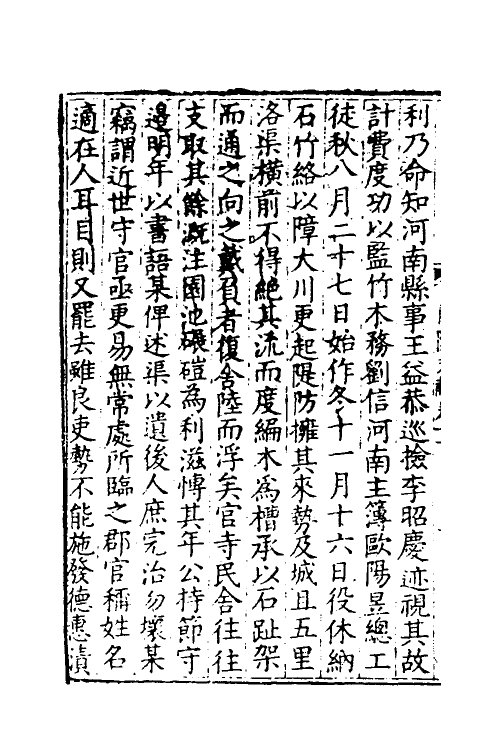 利乃命知河南縣事王益恭巡撿李昭慶迹視其故
計費度功以監竹木務劉信河南主簿歐陽昱總工
徒秋八月二十七日始作冬十一月十六日役休納
石竹絡以障大川更起隄防擁其來勢及城且五里
洛渠橫前不得絕其流而度編木爲槽承以石趾架
而通之向之戴負者復舍陸而浮矣官寺民舍往往
支取其餘溉注園池碾磑為利滋愽其年公持節守
邊明年以書語某俾述渠以遺後人庶完治勿壞某
竊謂近世守官亟更易無常處所臨之郡官稱姓名
適在人耳目則又罷去雖良吏勢不能施發德惠漬